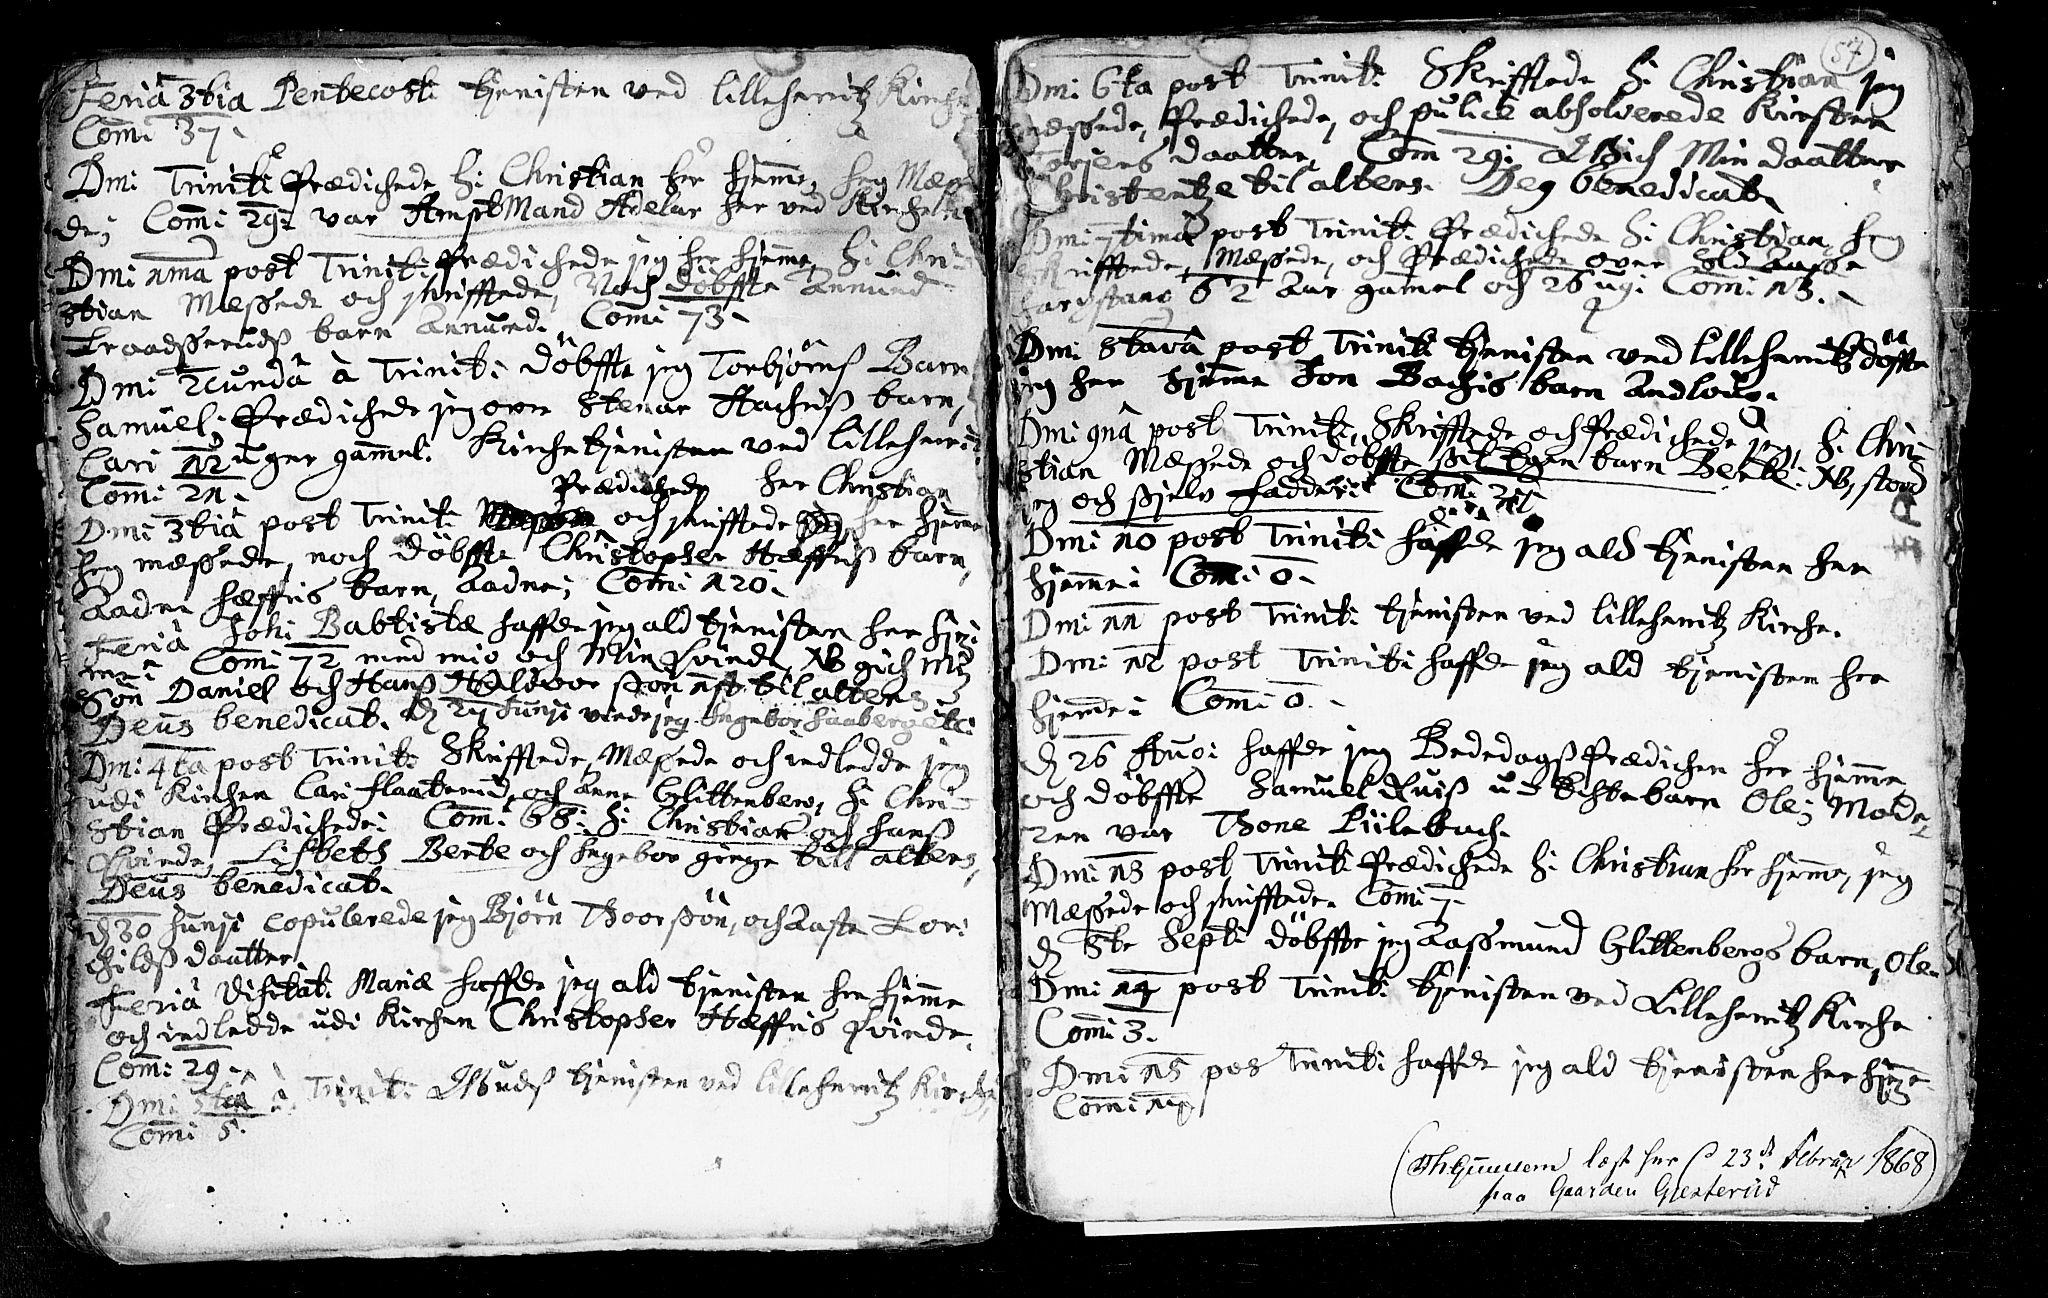 Feriâ 3tia Pentecost: tjenisten ved lilleherritz Kirche
Com̄: 37.
Dmi Trinit: Prædichede H: Christian her hjem̄e, Jeg Mæss
de; Com̄: 29: var AmptMand Adelar her ved Kirchen
Dmi 1ma post Trinit: Prædichede jeg her hjem̄e, H: Chri-
stian Mæssede och skrifftede, Noch döbffte Annund
Traadsseruds barn Annund. Com̄: 73.
Dmi 2cundâ à Trinit: Döbffte jeg Torbjörns Barn
Samuel. Prædichede jeg over Stenar Hachus barn,
Cari 12 uger gam̄el. Kirchetjenisten ved lilleherri:
Com̄: 21.
Prædichede her Christian
Dmi 3tiâ post Trinit: och skrifftede her hjem̄e
Jeg mæssede, noch Döbffte Christopher Hæffris barn,
Aadne Hæffris barn, Aadne; Com̄: 120.
Feriâ Joh: Babtistæ haffde jeg ald tjenisten her hje:
me: Com̄: 72 med mig och Min Qvinde, NB gich Min
Sön Daniel och Hans Haldvor sön 1st til alters
Deus benedicat. D 24 Junji viede jeg Ingebor Haaberg etc:
Dmi 4ta post Trinit: Skrifftede, Mæssede och indledde jeg
udi Kirchen Cari flaaterud, och Anne Glittenberg, H: Chri-
stian Prædichede: Com̄: 68: H: Christian och hans
Qvinde, Lisbeth Berte och Ingebor ginge till alters,
Deus benedicat.
D 30 Junji copulerede jeg Björn Thoorssön, och Aaste Tor:
childs daatter.
Feriâ Visitat: Mariæ haffde jeg ald tjenisten her hjem̄e
och indledde udi Kirchen Christopher Hæffris Qvinde.
Com̄: 29.
Dmi 5tâ à Trinit: Gudstjenisten ved lilleherritz Kirche,
Com̄: 5.
54
Dmi 6ta post Trinit: Skrifftede H: Christian jeg
mæssede, Prædichede, och pulicè absolverede Kirsten
Torjers daatter, Com̄ 29: Gich Min daatter
Christentze til alters. Deg benedicat.
Dmi 7timâ post Trinit: Prædichede H: Christian Jeg
skrifftede, Mæssede, och Prædichede over
62 Aar gam̄el och 26 ug: Com̄: 13.
Dmi 8tavâ post Trinit: tjenisten ved lilleherritz döfte
jeg her hjem̄e Jon Bachis barn Andloug.
Dmi 9nâ post Trinit: Skrifftede och Prædichede jeg, H: Chri-
stian Mæssede och döbffte sit Egen barn Berte: NB, stoed
jeg och sjelv fadder: Com̄: 21
Dmi 10 post Trinit: haffde jeg ald tjenisten her
hjem̄e: Com̄: 0.
Dmi 11 post Trinit: tjenisten ved lilleherritz Kirche.
Dmi 12 post Trinit: haffde jeg ald tjenisten her
hjem̄e: Com̄: 0.
D 26 Aug: haffde jeg Bededags Prædichen her hjem̄e
och döbffte Samuel Qvis uechtebarn Ole; Mode-
ren var Thone Liilebach.
Dmi 13 post Trinit: Prædichede H: Christian her hjem̄e, jeg
Mæssede och skrifftede. Com̄: 7.
D 8te Sept: döbffte jeg Aassmund Glittenbergs barn, Ole.
Dmi 14 post Trinit: tjenisten ved Lilleherritz Kirche
Com̄: 3.
Dmi 15 pos Trinit: haffde jeg ald tjenisten her hjem̄e
Com̄: 14
læst her d 23de Februar 1868
paa Gaarden Gjesterud